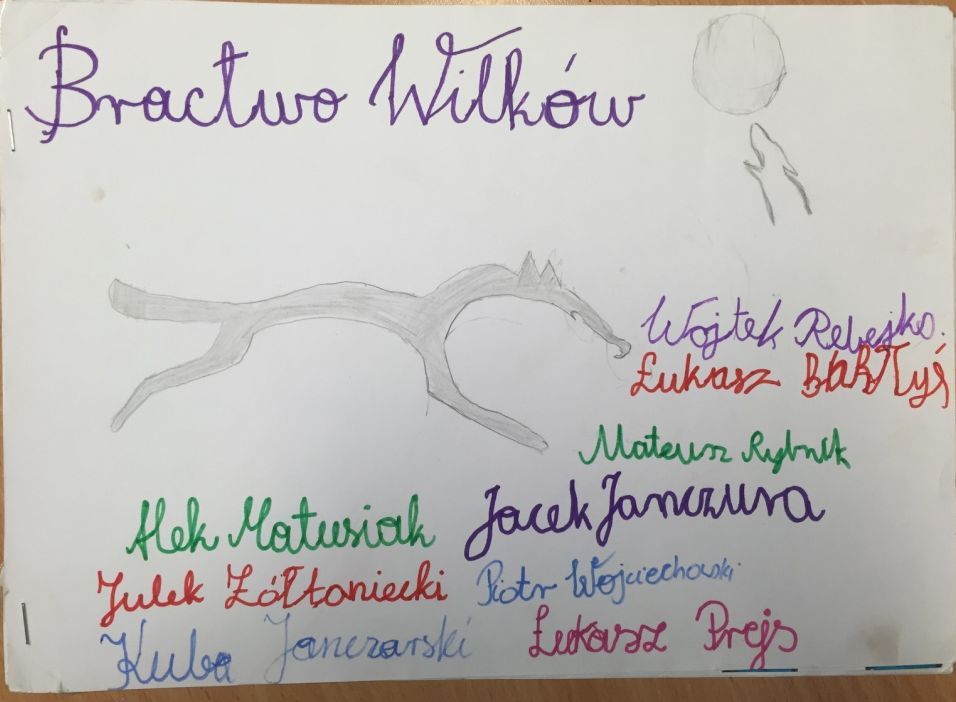 Bractwo Wilków
Wojtek Rebejko.
Łukasz Bartłyś
Mateusz Rybnik
Alek Matusiak Jacek Janczura
Julek Żółtaniecki Piotr Wojciechowski
Kuba Janczarski Łukasz Prejs